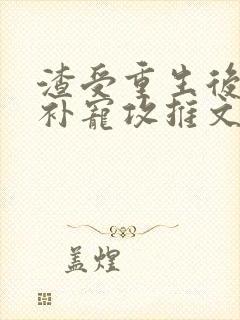 渣受重生後
补寵攻推文
盖煌